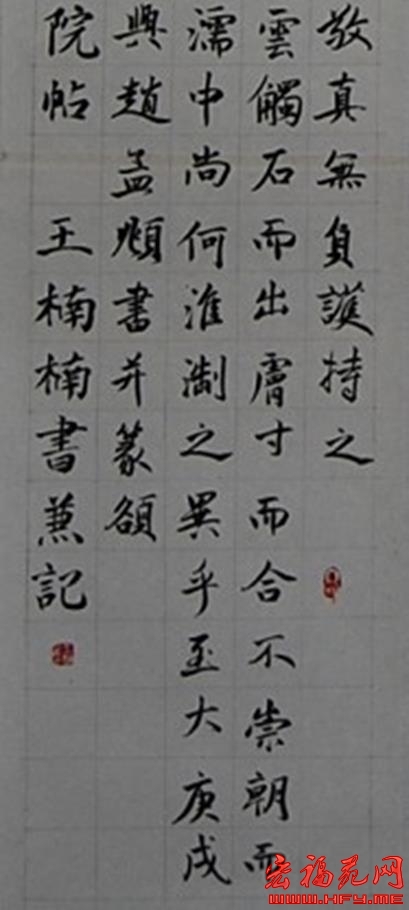 敬真無負護持之
雲觸石而出膚寸而合不崇朝而
濡中尚何淮淛之異乎至大庚戌
興趙孟頫書并篆額
院帖 王楠楠書兼記
宏福苑网
WWW.HFY.ME